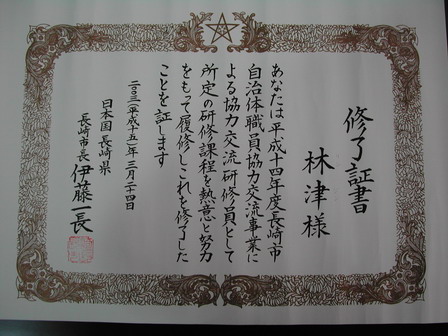 修了証書
林津様
あなたは平成十四年度長崎市
自治体職員協力交流事業に
よる協力交流研修員として
所定の研修課程を熱意と努力
をもって履修しこれを修了した
ことを証します
二〇〇三(平成十五)年三月二十四日
日本国長崎県
長崎市長伊藤一長